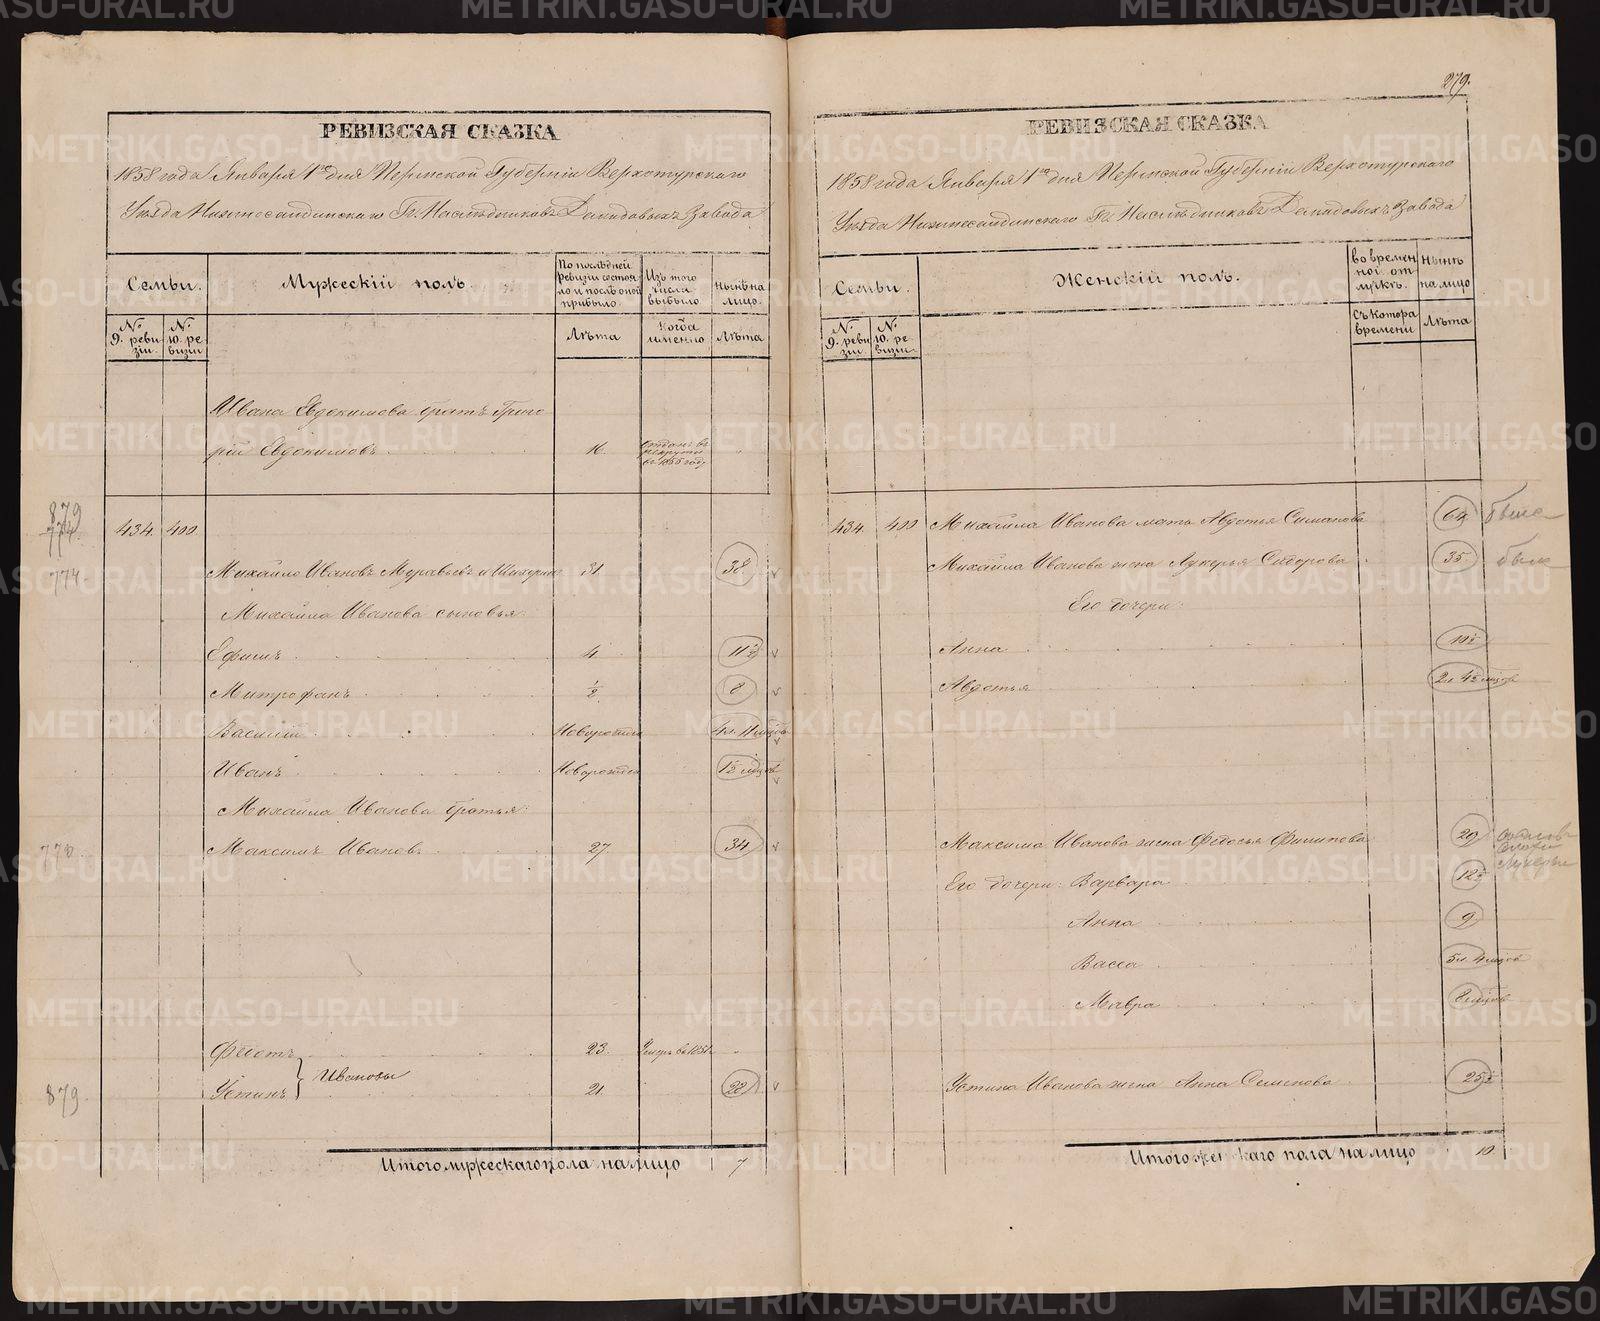 279.
РЕВИЗСКАЯ СКАЗКА
1858 года Января 1го дня Пермской Губернiи Верхотурскаго
Уѣзда Нижнесалдинскаго Гг. Наслѣдниковъ Демидовыхъ Завода
Семьи.
Мужескiй полъ.
По послѣдней ревизiи состояло и послѣ оной прибыло.
Изъ того числа выбыло
Нынѣ на лицо.
№ 9. ревизiи
№ 10. ревизiи
Лѣта
Когда именно
Лѣта
Ивана Евдокимова братъ Григо
рiй Евдокимовъ 16. отданъ въ рекруты въ 1855 году
879
434. 400.
774. Михайло Ивановъ Муравьевъ и 31. 38
Михайла Иванова сыновья:
Ефимъ 4. 11½
Митрофанъ ½ 8
Василiй Новорожден 4 л. 11 мѣцов
Иванъ Новорожден
Михайла Иванова братья:
Максимъ Ивановъ 27. 34
Фёдотъ 23.
879. Устинъ Ивановы 21. 28
Итого мужескаго пола на лицо 7
РЕВИЗСКАЯ СКАЗКА
1858 года Января 1го дня Пермской Губернiи Верхотурскаго
Уѣзда Нижнесалдинскаго Гг. Наслѣдниковъ Демидовыхъ Завода
Семьи.
Женскiй полъ.
во временной отлучкѣ.
Нынѣ на лицо
№ 9. ревизiи
№ 10. ревизiи
Съ котора времени
Лѣта
434. 400 Михайла Иванова мать Авдотья Симанова 64
Михайла Иванова жена Лукерья Сидорова 35
Его дочери:
Анна 10½
Авдотья
Максима Иванова жена Федосья Филипова 29
Его дочери: Варвара 12½
Анна 9
Васса 5 л. 4 мѣцов
Мавра 8 мѣцов
Устина Иванова жена Анна Семенова 25½
Итого женскаго пола на лицо 10.
METRIKI.GASO-URAL.RU